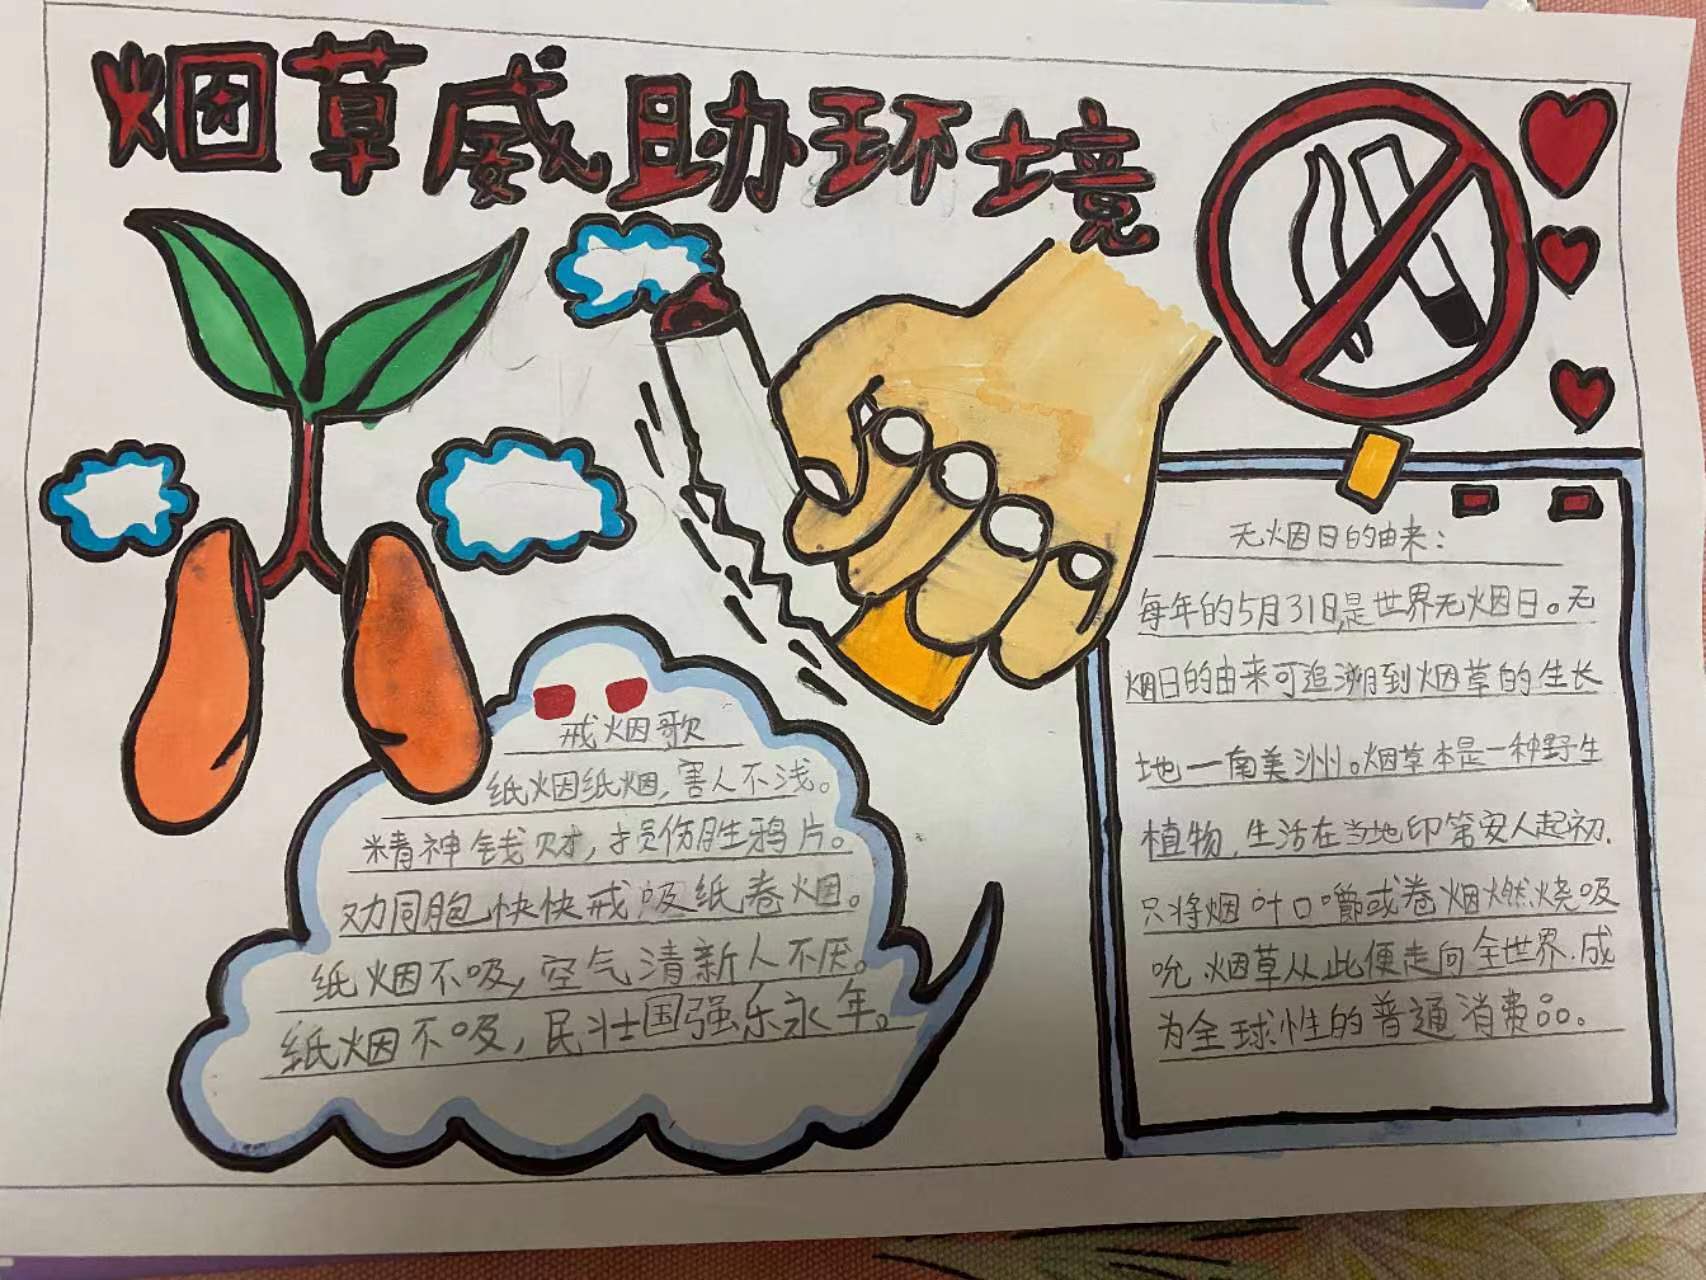 烟草威助环境
戒烟歌
纸烟纸烟，害人不浅。
精神钱财，损伤胜鸦片。
劝同胞快快戒吸纸卷烟。
纸烟不吸，空气清新人不厌。
纸烟不吸，民壮国强乐永年。
无烟日的由来：
每年的5月31日是世界无烟日。无
烟日的由来可追溯到烟草的生长
地一南美洲。烟草本是一种野生
植物，生活在当地印第安人起初，
只将烟叶口嚼或卷烟燃烧吸
吮，烟草从此便走向全世界，成
为全球性的普通消费品。